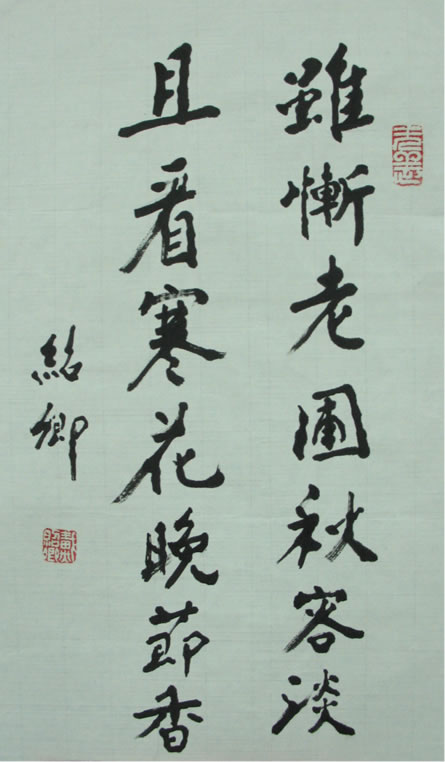 雖慚老圃秋容淡
且看寒花晚節香
紹卿